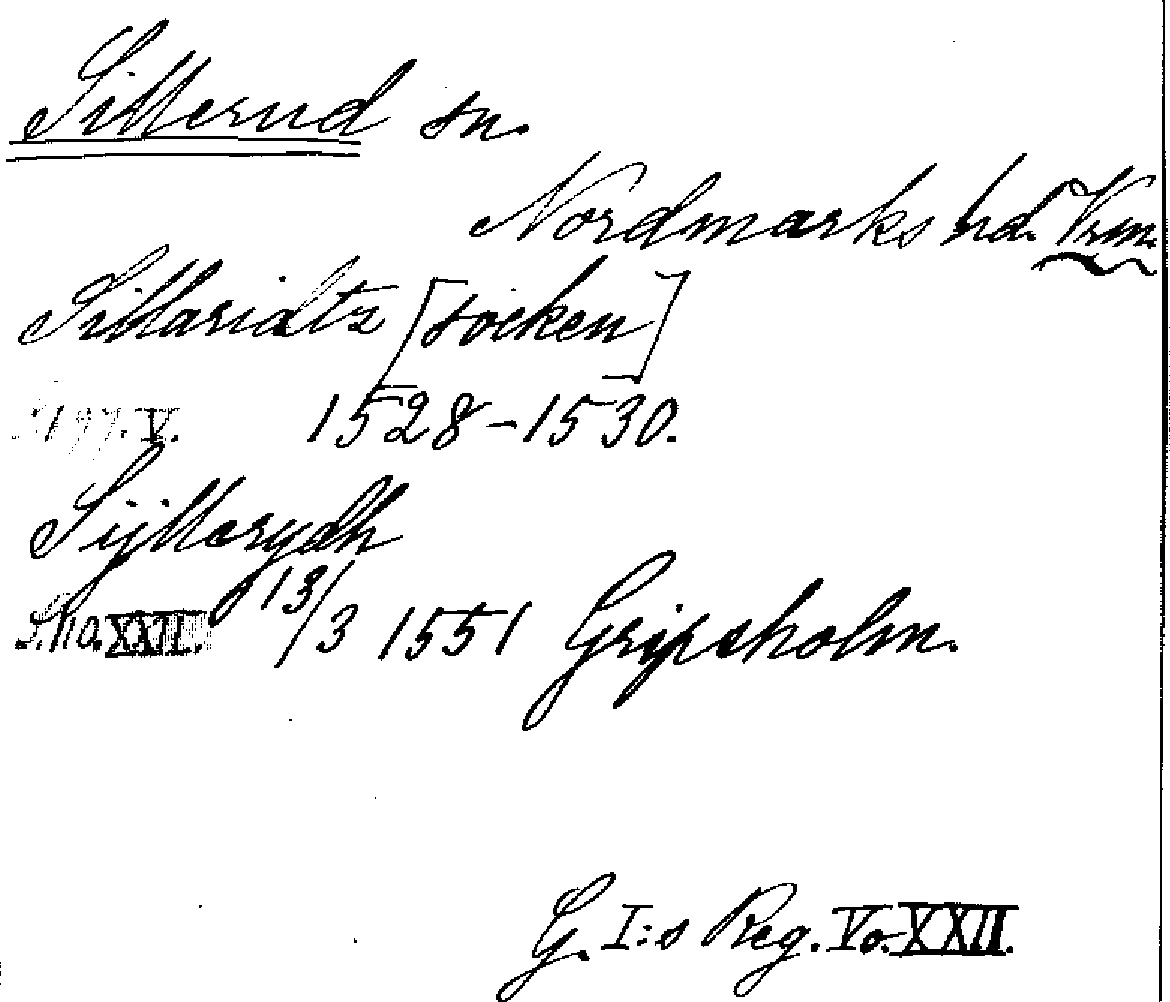 Sillerud sn.
Nordmarks hd. Vrm.
Sillaridtz [socken]
S. 197. V. 1528-1530.
Sijllerydh
S. 110. XXII. 13/3 1551 Gripsholm.
G. I:s Reg. V o. XXII.